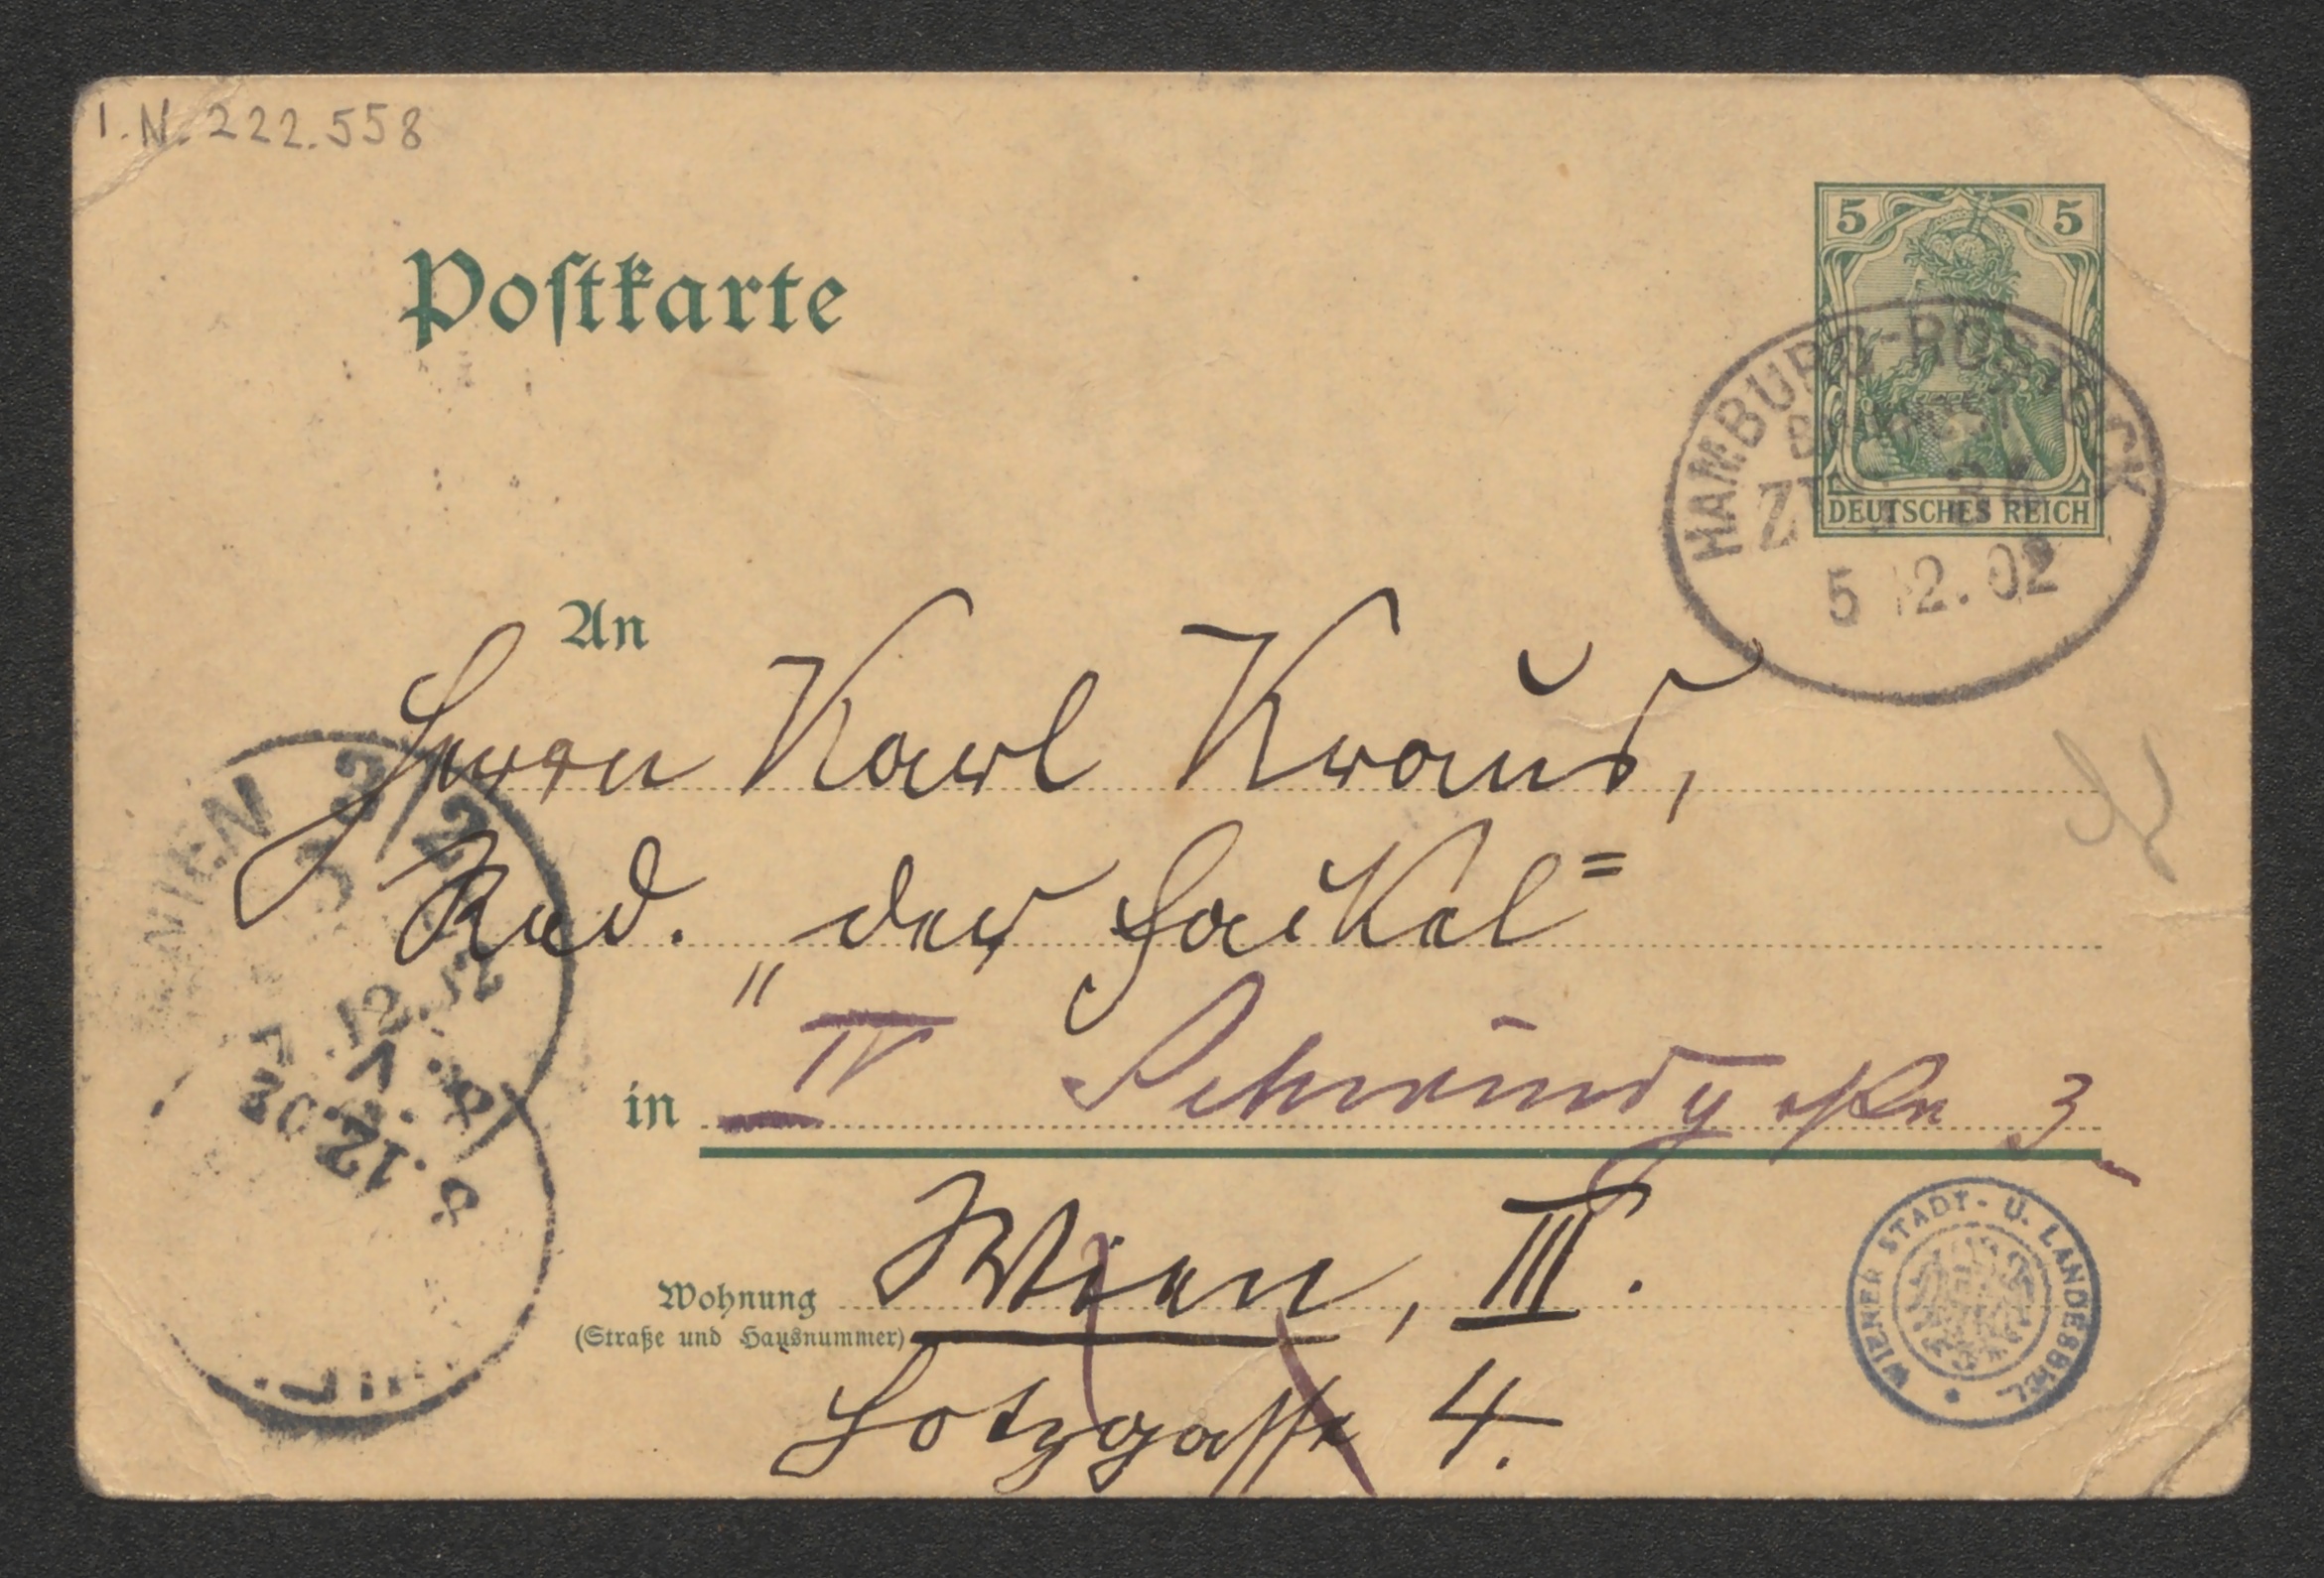 I.N. 222.558
Postkarte
5 5
DEUTSCHES REICH
HAMBURG-ROSTOCK
BAHNPOST
5 12.02
An
Herrn Karl Kraus,
Red. „der Fackel"
in IV Schwindgasse 3
Wien, III.
Wohnung
(Straße und Hausnummer)
Hetzgasse 4.
WIEN 3/2
WIENER STADT- U. LANDESBIBL.